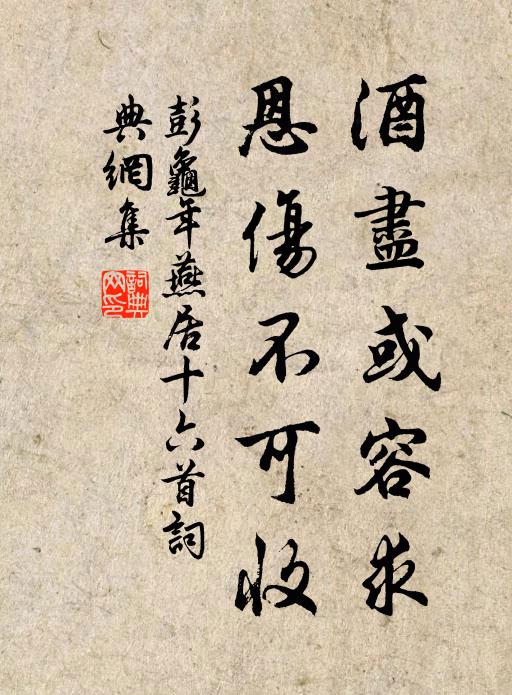 酒盡或容求
恩傷不可收
彭龜年燕居十六首詞
典網集
詞典網印